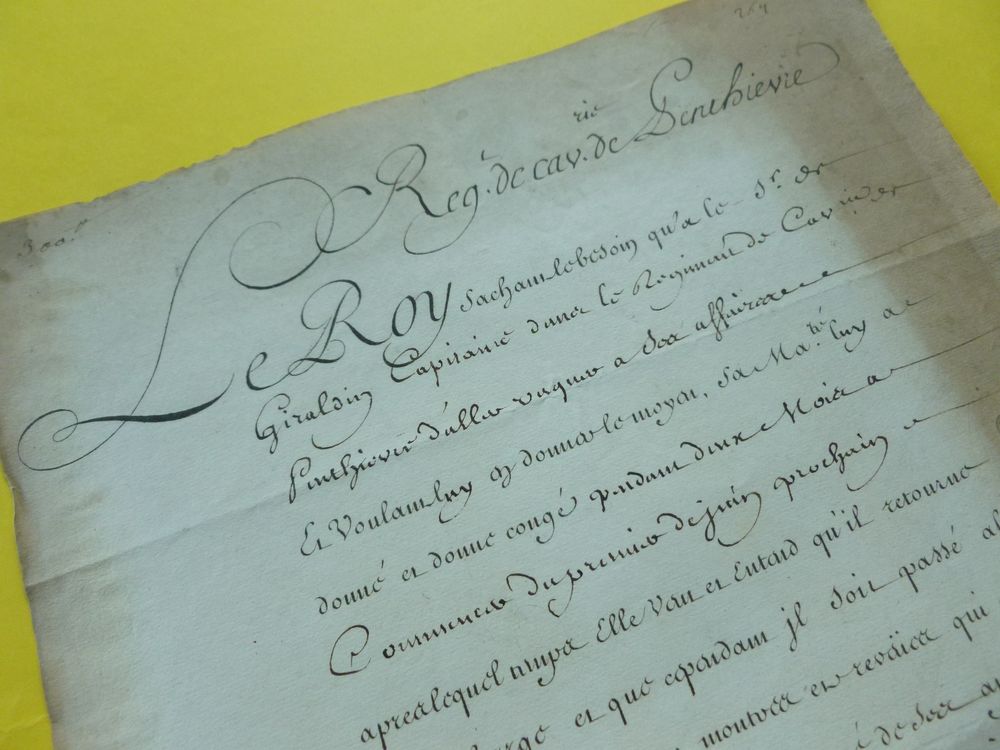 264
300.#
Reg.t de cav.rie de Penthievre
Le Roy sachant le besoin qu'a le S.r de
Giraldin Capitaine dans le Regiment de Cav.rie de
Penthievre d'aller vaquer a ses affaires
Et Voulant luy en donner le moyen, Sa Ma.té luy a
donné et donne congé pendant deux Mois a
Commencer du premier de juin prochain
apres lequel temps Elle Veut et Entend qu'il retourne
et que cependant jl soit passé
montres et reveües qui
de ses